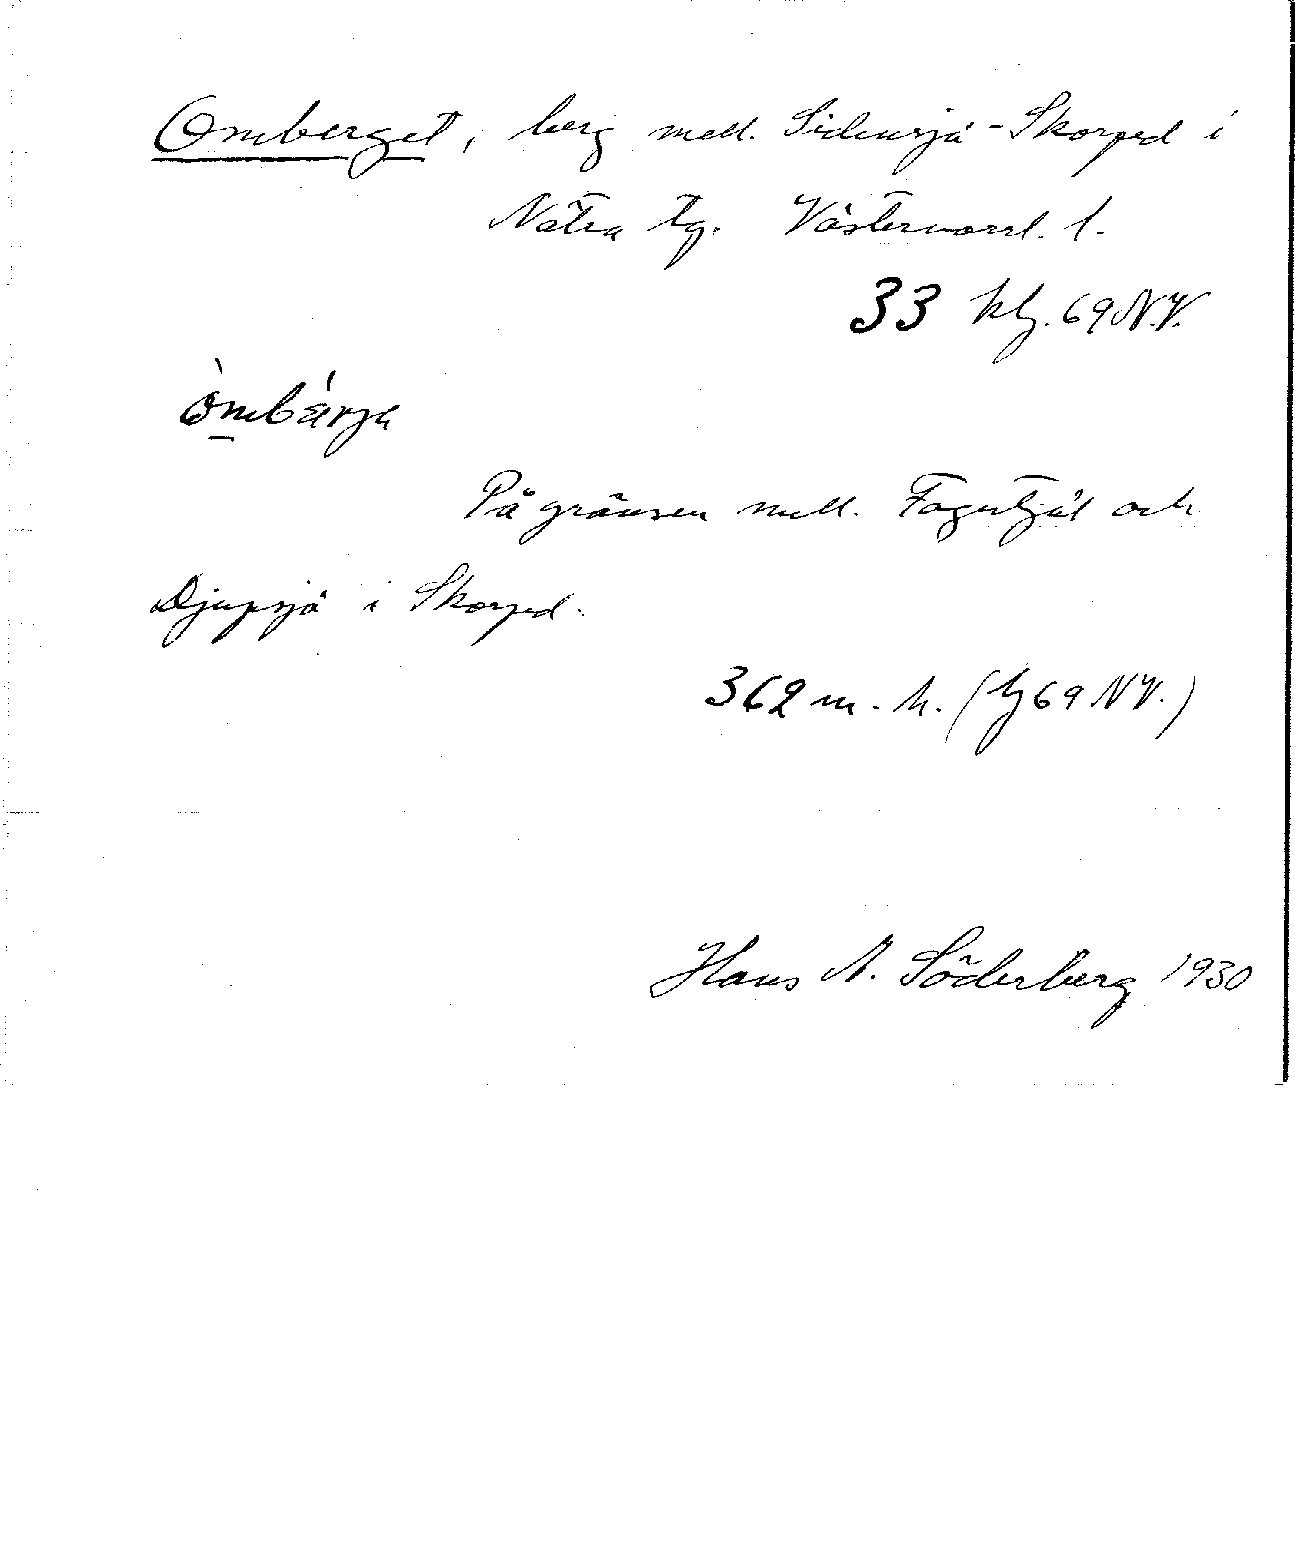 Omberget, berg mell. Sidensjö - Skorped i
Nätra tg. Västernorrl. l.
33 kbg. 69 N.V.
òmbárja
På gränsen mell. Fagertjäl och
Djupsjö i Skorped.
362 m. h. (bg 69 NV.)
Hans A. Söderberg 1930